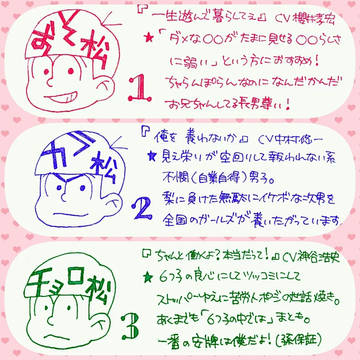 おそ松
1
『一生遊んで暮らしてえ』 CV櫻井孝宏
★「ダメな○○がたまに見せる○○らしさ
に弱い」という方におすすめ!
ちゃらんぽらんなのになんだかんだ
お兄ちゃんしてる長男尊い!
カラ松
2
『俺を養わないか』 CV中村悠一
★見え張りが空回りして報われない系
不憫(自業自得)男子。
梨に負けた無駄にイケボな次男を
全国のガールズが養いたがっています
チョロ松
3
『ちゃんと働くよ?本当だって!』CV神谷浩史
★6つ子の良心にしてツッコミにして
ストッパーゆえに苦労人ポジの世話焼き。
あくまでも「6つ子の中では」まとも。
一番の安牌は僕だよ!(仮保証)